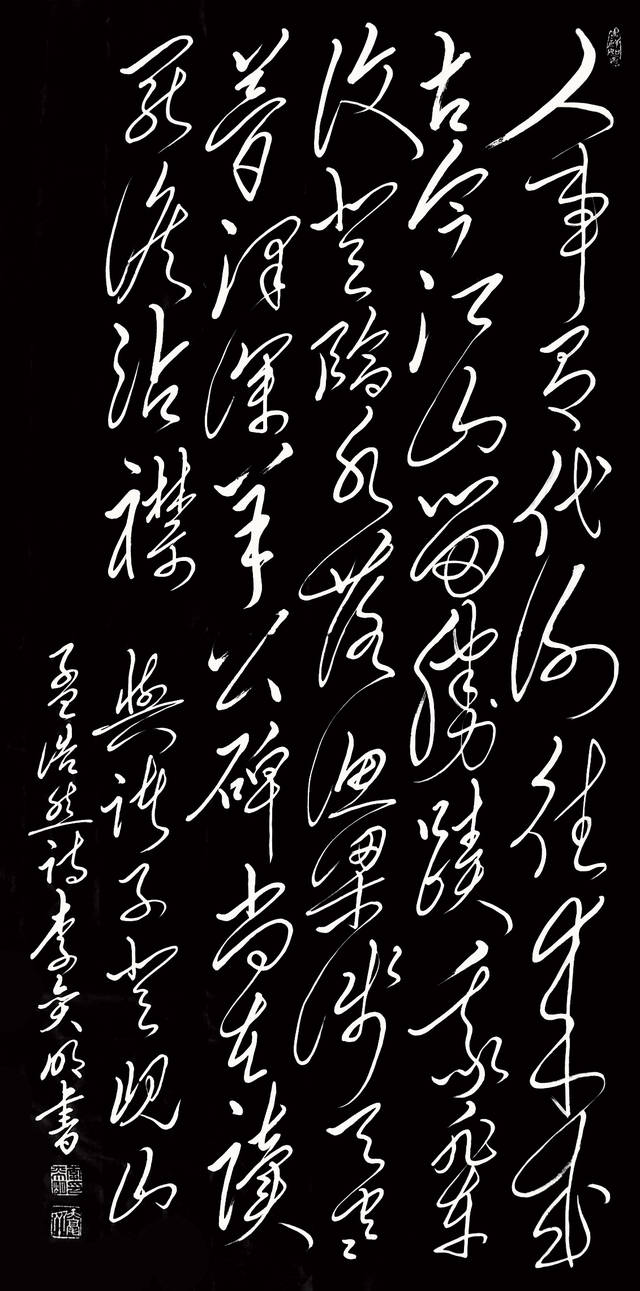 人事有代謝往來成
古今江山留勝蹟我輩
復登臨水落漁梁淺天寒
夢澤深羊公碑尚在讀
罷淚沾襟 與諸子登峴山
孟浩然詩李奐明書